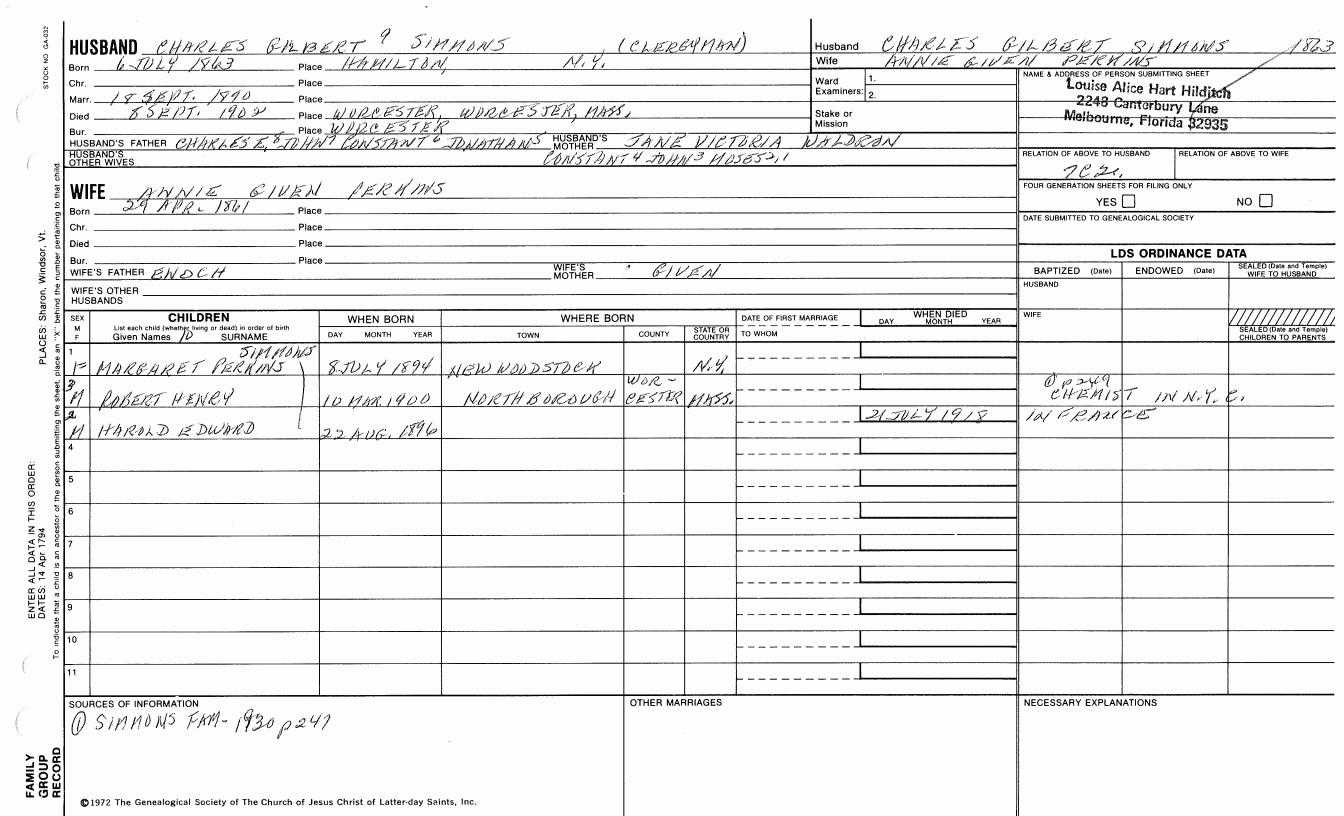 STOCK NO. GA-032
HUSBAND CHARLES GILBERT 9 SIMMONS (CLERGYMAN)
Born 6 JULY 1863 Place HAMILTON, N.Y.
Chr. Place
Marr. 18 SEPT. 1890 Place
Died 8 SEPT. 1902 Place WORCESTER, WORCESTER, MASS.
Bur. Place WORCESTER
HUSBAND'S FATHER CHARLES E, 8 JOHN 7 CONSTANT 6 JONATHAN 5 HUSBAND'S MOTHER JANE VICTORIA WALDRON
HUSBAND'S OTHER WIVES CONSTANT 4 JOHN 3 MOSES 2,1
WIFE ANNIE GIVEN PERKINS
Born 29 APR. 1861 Place
Chr. Place
Died Place
Bur. Place
WIFE'S FATHER ENOCH WIFE'S MOTHER GIVEN
WIFE'S OTHER HUSBANDS
Husband CHARLES GILBERT SIMMONS 1863
Wife ANNIE GIVEN PERKINS
Ward Examiners: 1.
2.
Stake or Mission
NAME & ADDRESS OF PERSON SUBMITTING SHEET
Louise Alice Hart Hilditch
2248 Canterbury Lane
Melbourne, Florida 32935
RELATION OF ABOVE TO HUSBAND RELATION OF ABOVE TO WIFE
FOUR GENERATION SHEETS FOR FILING ONLY
YES NO
DATE SUBMITTED TO GENEALOGICAL SOCIETY
LDS ORDINANCE DATA
BAPTIZED (Date) ENDOWED (Date) SEALED (Date and Temple) WIFE TO HUSBAND
HUSBAND
WIFE
SEALED (Date and Temple) CHILDREN TO PARENTS
SEX M F
CHILDREN
List each child (whether living or dead) in order of birth
Given Names 10 SURNAME
WHEN BORN
DAY MONTH YEAR
WHERE BORN
TOWN COUNTY STATE OR COUNTRY
DATE OF FIRST MARRIAGE
TO WHOM
WHEN DIED
DAY MONTH YEAR
1 SIMMONS
F MARGARET PERKINS 8 JULY 1894 NEW WOODSTOCK N.Y.
3 WOR- ① p249
M ROBERT HENRY 10 MAR 1900 NORTHBOROUGH CESTER MASS. CHEMIST IN N.Y.C.
2 21 JULY 1918 IN FRANCE
M HAROLD EDWARD 22 AUG. 1896
4
5
6
7
8
9
10
11
SOURCES OF INFORMATION
① SIMMONS FAM- 1930 p247
OTHER MARRIAGES
NECESSARY EXPLANATIONS
©1972 The Genealogical Society of The Church of Jesus Christ of Latter-day Saints, Inc.
FAMILY
GROUP
RECORD
ENTER ALL DATA IN THIS ORDER:
DATES: 14 Apr 1794
PLACES: Sharon, Windsor, Vt.
To indicate that a child is an ancestor of the person submitting the sheet, place an "X" behind the number pertaining to that child.